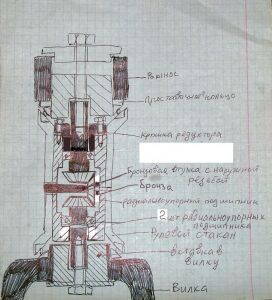 Вынос
Проставочное кольцо
крышка редуктора
Бронзовая втулка с наружней
резьбой
бронза
радиальноупорный подшипник
2 шт радиальноупорных
подшипника
Рулевой стакан
вставка в
вилку
Вилка